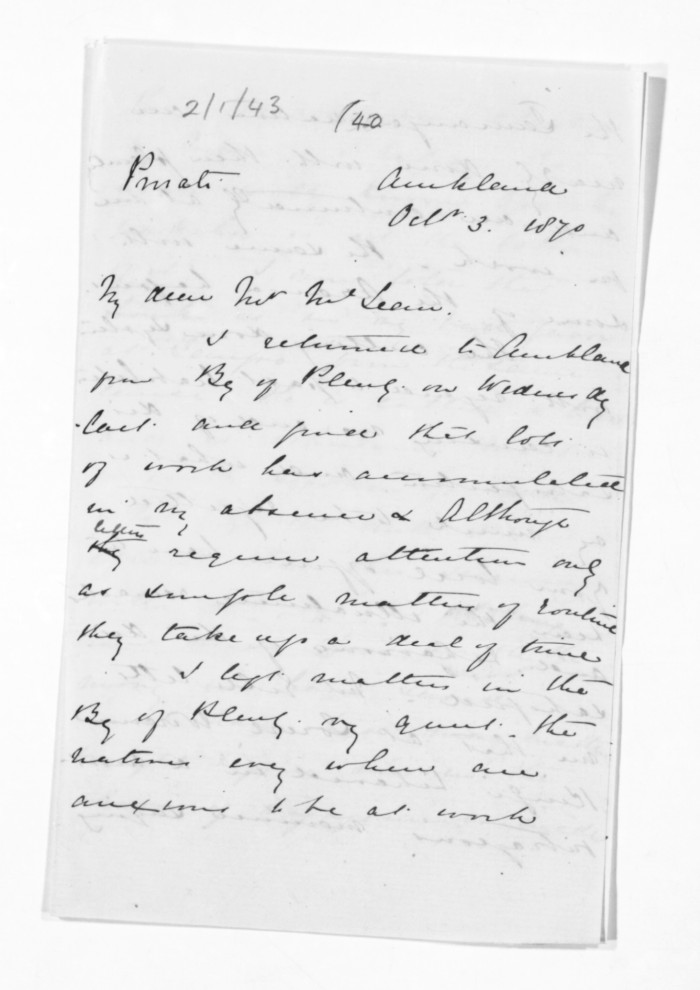 2/1/43 (40
Private Auckland
Octr 3. 1870
My dear Mr McLean.
I returned to Auckland
from Bay of Plenty on Wednesday
last and find that lots
of work has accumulated
in my absence & Although
letters
they require attention only
as simple matters of routine
they take up a deal of time
I left matters in the
Bay of Plenty vy quiet. the
natives every where are
anxious to be at work